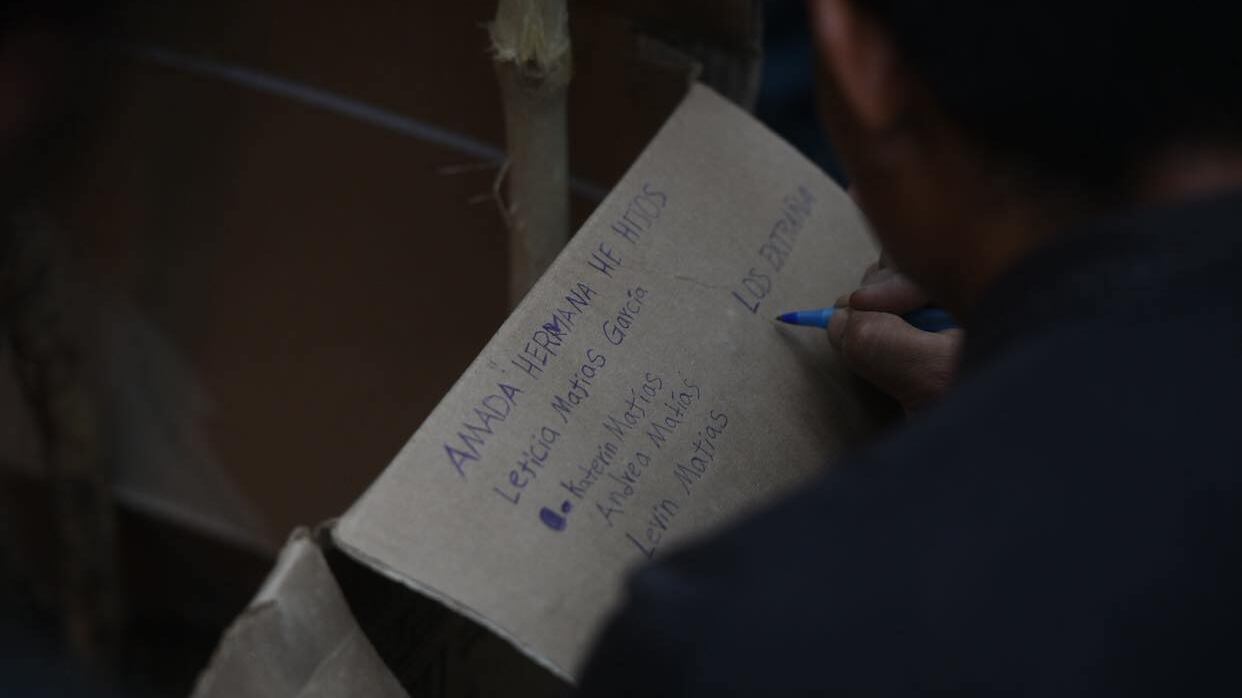 AMADA HERMANA HE HIJOS
Leticia Matias García
Katerin Matías
Andrea Matías
Levin Matias
LOS EXTRAÑA